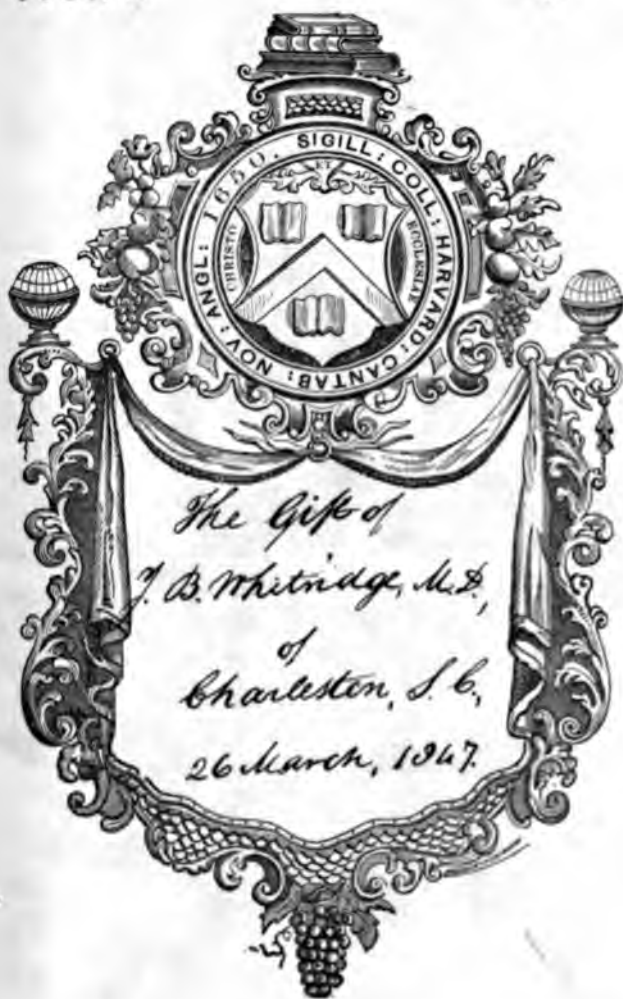 SIGILL: COLL: HARVARD: CANTAB: NOV: ANGL: 1650.
ET
CHRISTO
ECCLESIAE
The Gift of
J. B. Whitridge, M.D.,
of
Charleston, S. C.,
26 March, 1847.